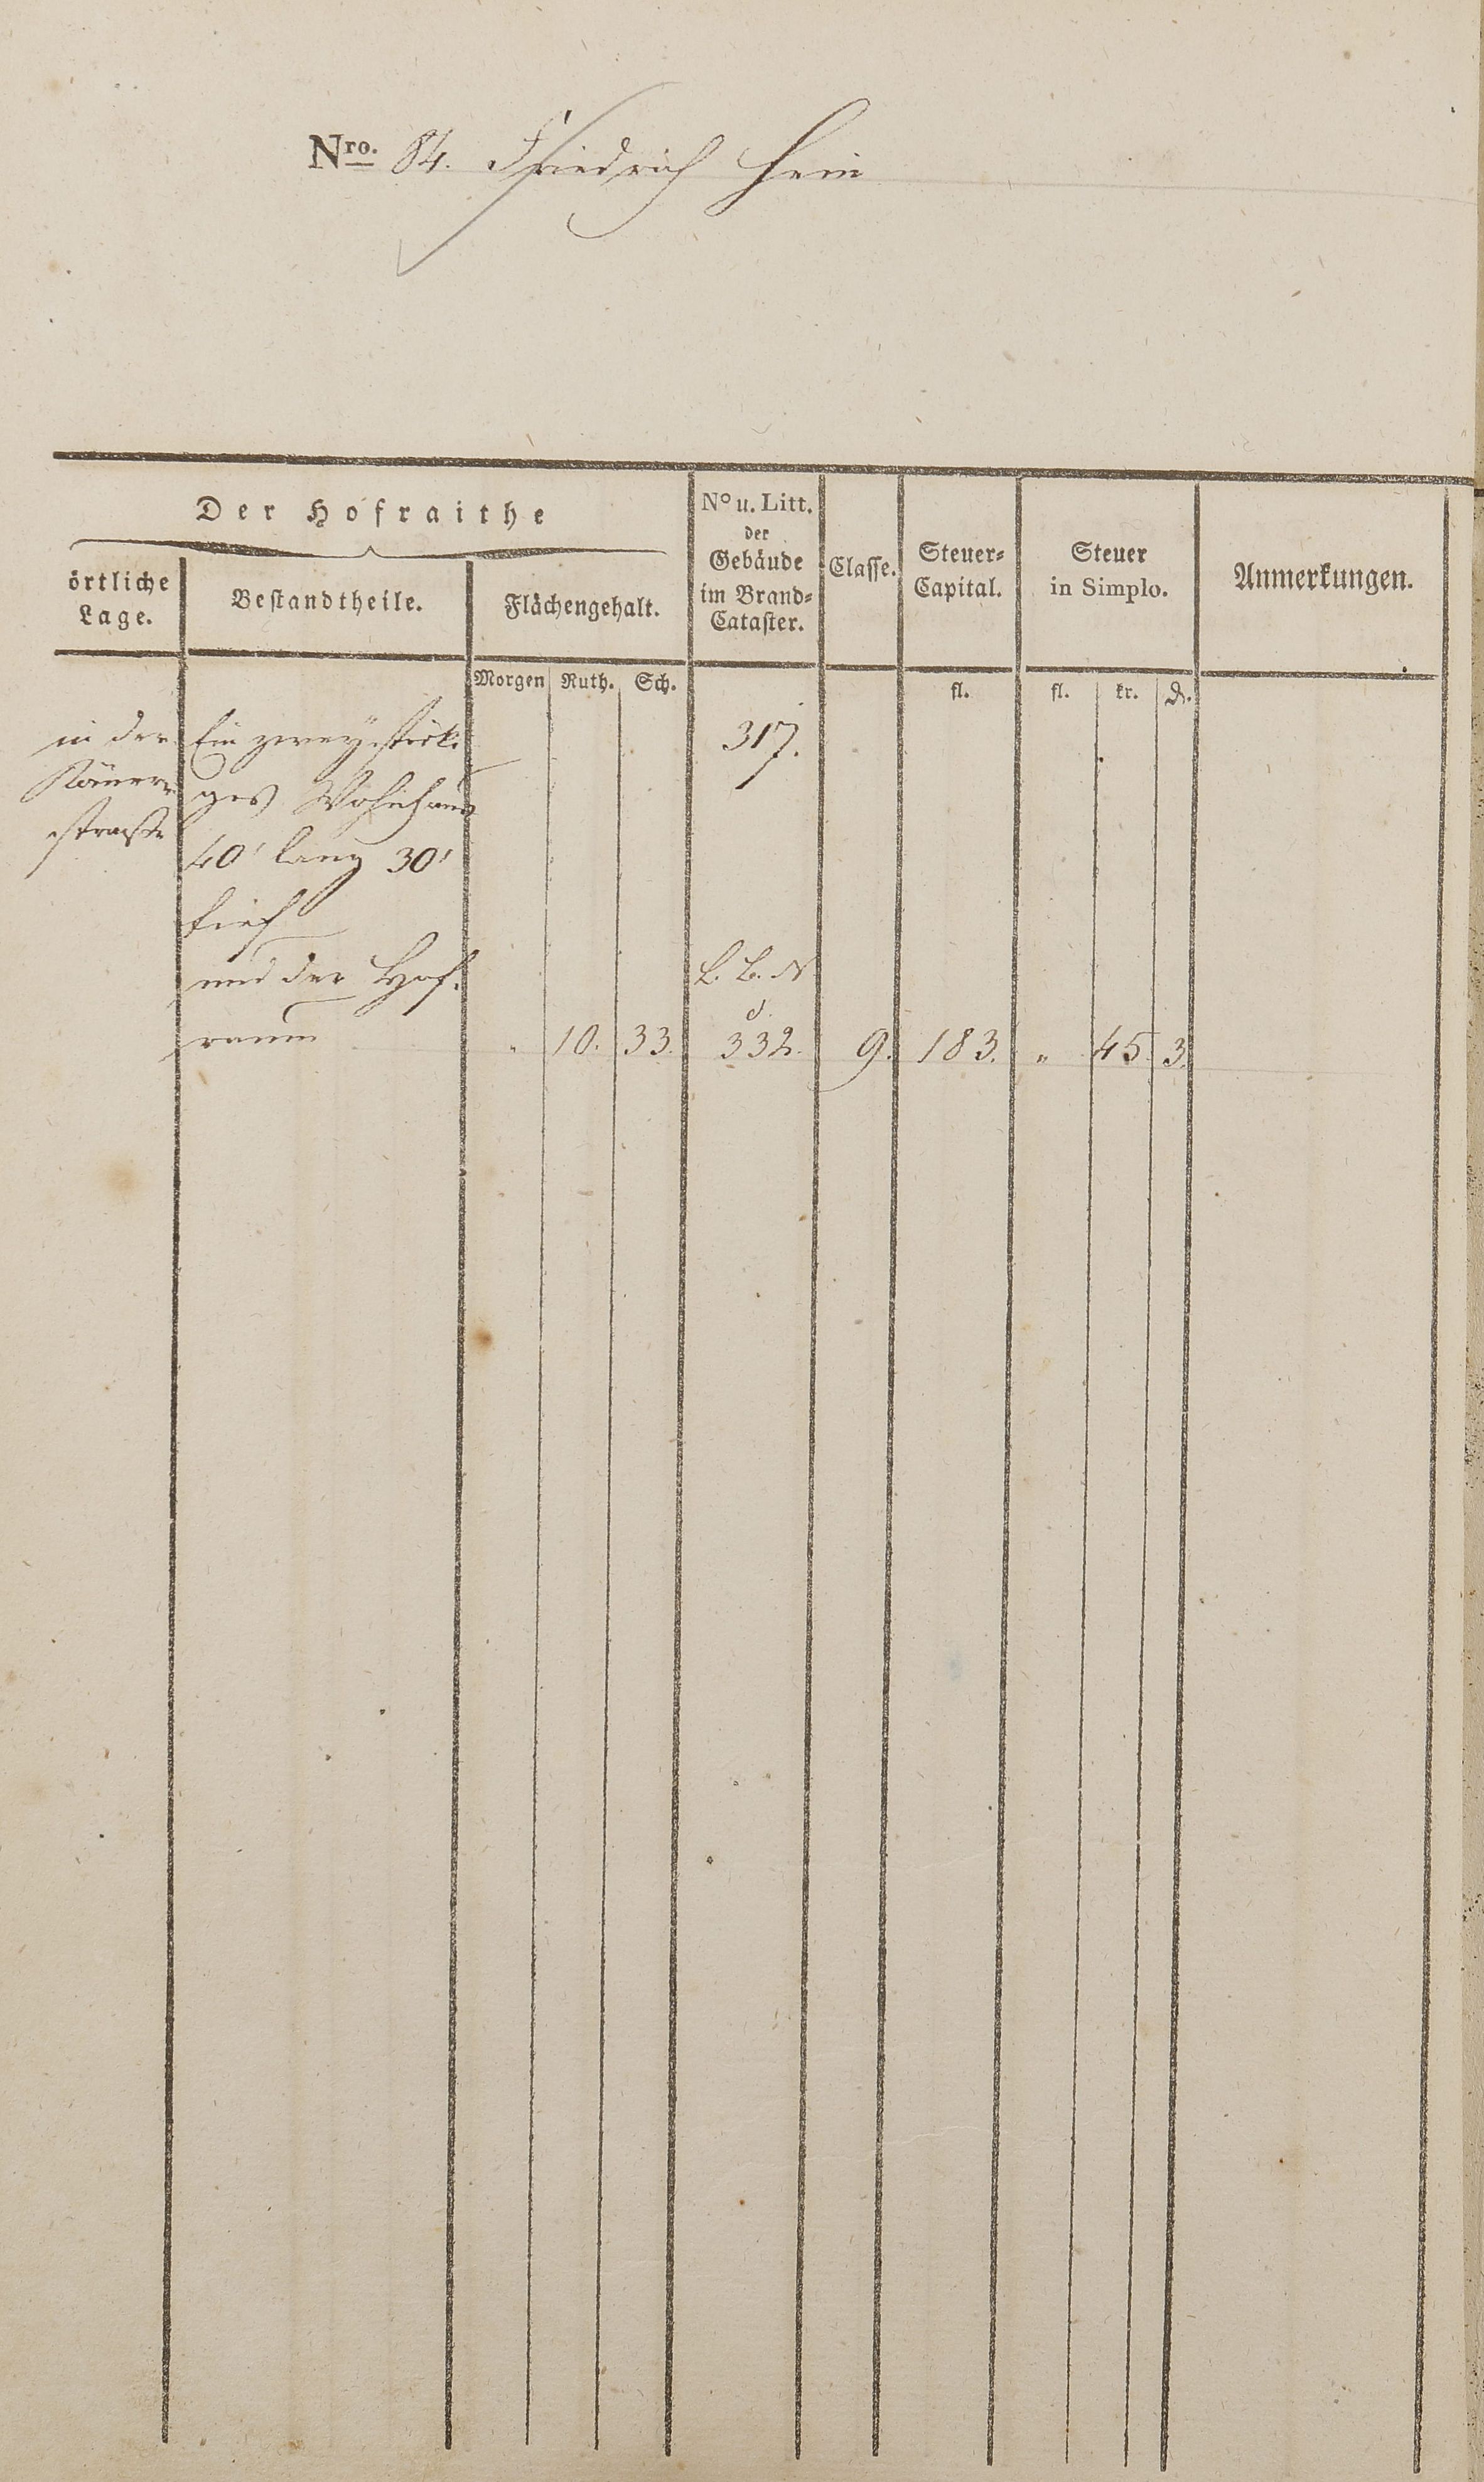 Nro. 84. Friedrich Hein
Der Hofraithe
örtliche Lage.
Bestandtheile.
Flächengehalt.
No u. Litt. der Gebäude im Brand-Cataster.
Classe.
Steuer-Capital.
Steuer in Simplo.
Anmerkungen.
Morgen Ruth. Sch. fl. fl. kr. d.
in der Ein zweystöcki- 317.
ges Wohnhaus
straße 40' lang 30'
tief
und der Hof- L. B. N
raum " 10. 33. 332. 9. 183. " 45 3.